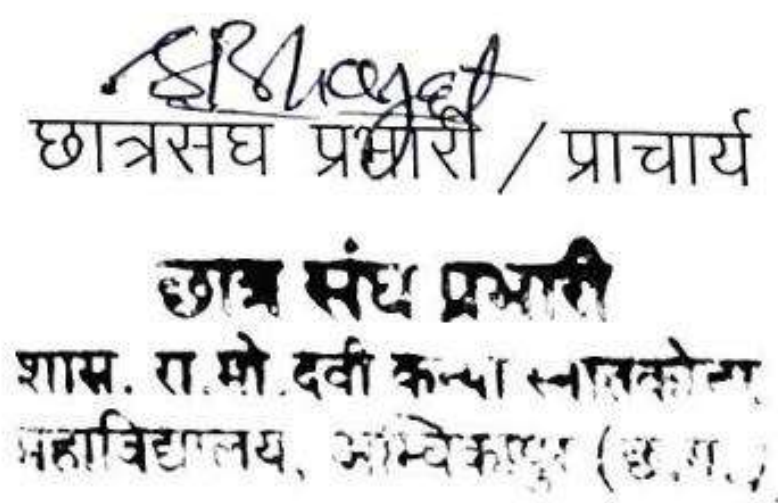 छात्रसंघ प्रभारी / प्राचार्य
छात्र संघ प्रभारी
शास. रा.मो.देवी कन्या स्नातकोत्तर
महाविद्यालय, अम्बिकापुर (छ.ग.)